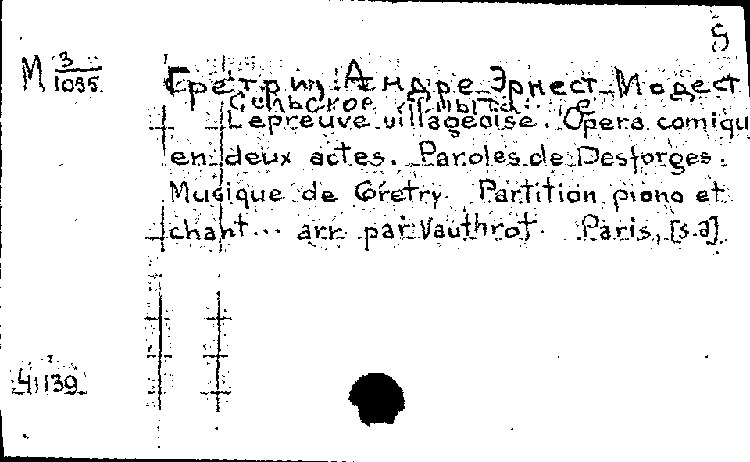 5
М 3/1035
Гретри, Андре Эрнест Модест
Сельское
L'epreuve villageoise. Opera comique
en deux actes. Paroles de Desforges.
Musique de Gretry. Partition piano et
chant... arr. par Vauthrot. Paris, [s.a]
41139